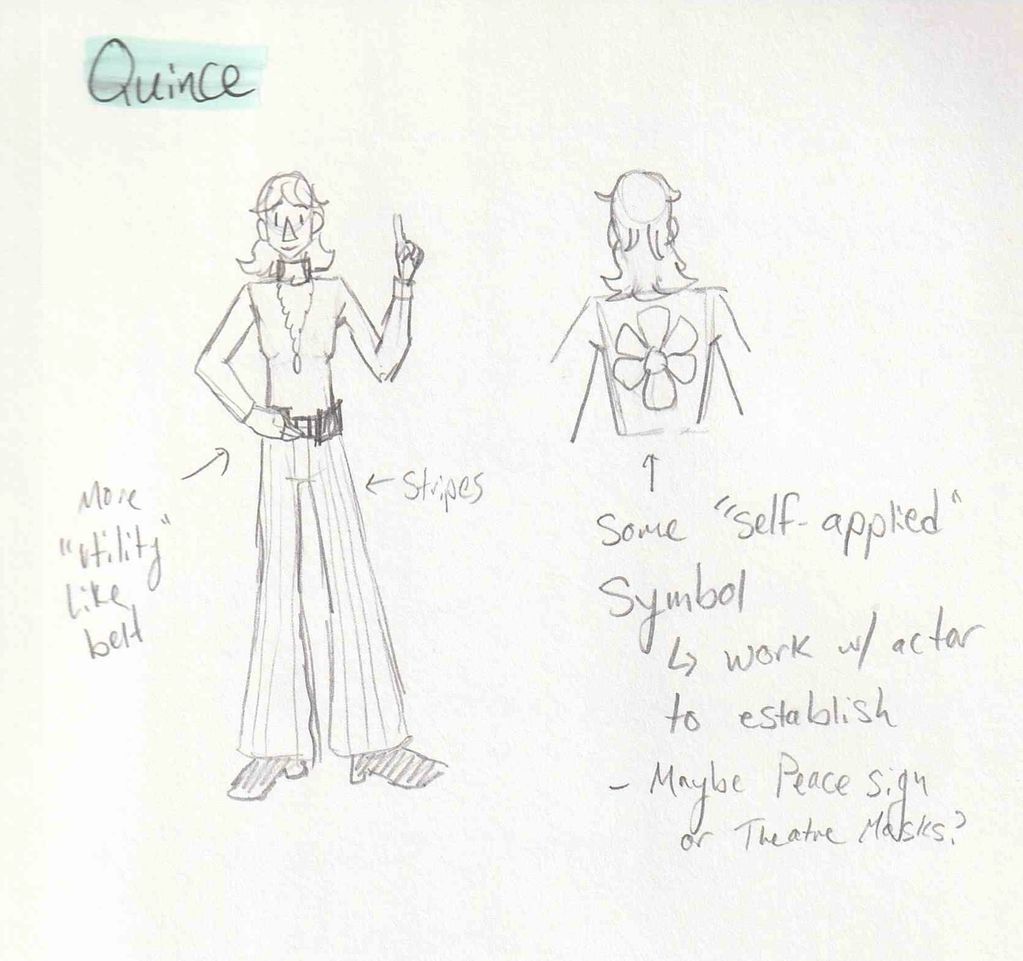 Quince
More
"utility"
like
belt
← Stripes
Some "self-applied"
Symbol
↳ work w/ actor
to establish
- Maybe Peace sign
or Theatre Masks?